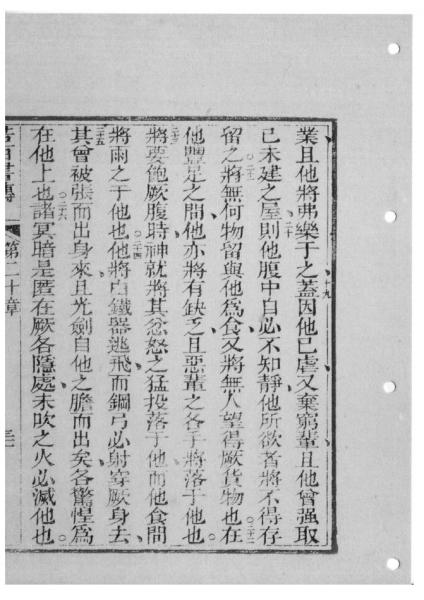 業且他將弗樂于之蓋因他已虐又棄窮輩且他曾强取
十九
己未建之屋則他腹中自必不知靜他所欲者將不得存
二十
留之將無何物留與他爲食又將無人望得厥貨物也在
二一
二二
他豐足之間他亦將有缺乏且惡輩之各手將落于他也
將要飽厥腹時神就將其忿怒之猛投落于他而他食間
二三
將雨之于他也他將自鐵器逃飛而鋼弓必射穿厥身去
二四
其曾被張而出身來且光劍自他之膽而出矣各驚惶爲
二五
在他上也諸冥暗是匿在厥各隱處未吹之火必滅他也
二六
若百書傳 第二十章